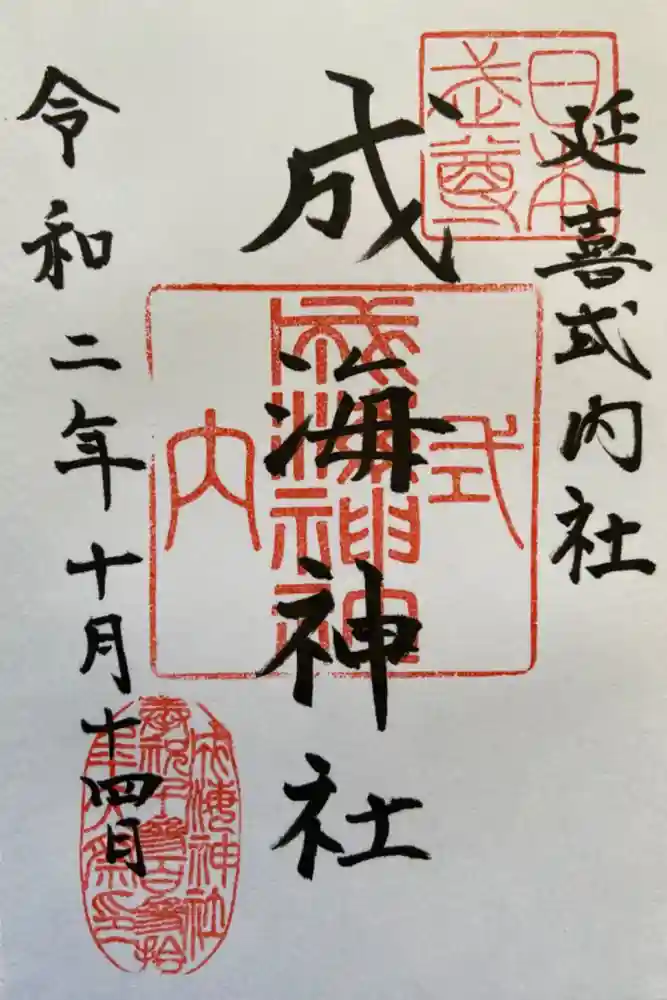 延喜式内社
日本
武尊
成海神社
式
成海神社
内
令和二年十月十四日
成海神社